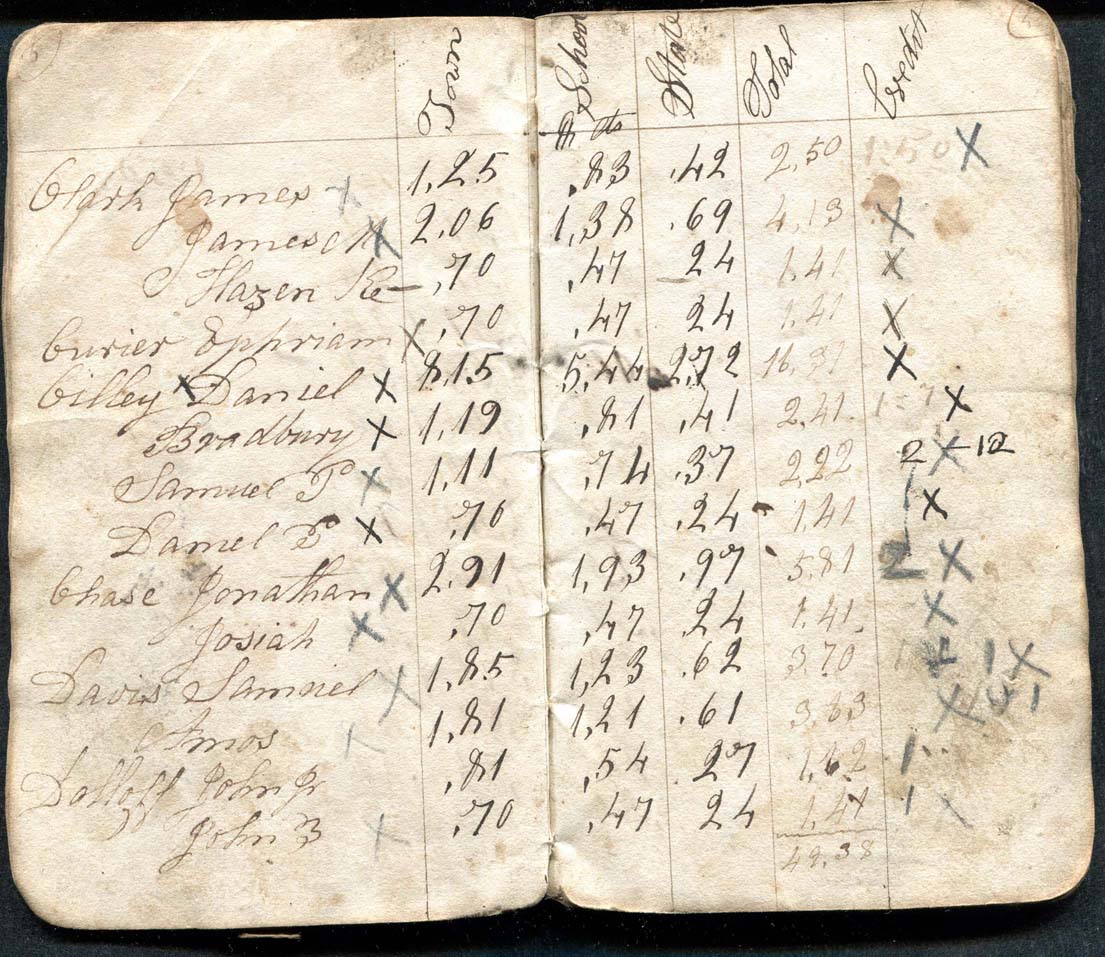 5 5
Town School State Total Credit
Clark James X 1,25 ,83 .42 2,50 1.50 X
James M X 2,06 1,38 .69 4,13 X
Hazen K ,70 ,47 24 1,41 X
Currier Ephriam X ,70 ,47 24 1,41 X
Cilley X Daniel X 8,15 5,44 2,72 16,31 X
Bradbury X 1,19 ,81 ,41 2,41 X
Samuel P X 1,11 ,74 .37 2,22 2 X 12
Daniel B X ,70 ,47 .24 1,41 X
Chase Jonathan X 2,91 1,93 .97 5,81 2 X
Josiah X ,70 ,47 24 1,41 X
Davis Samuel X 1,85 1,23 .62 3,70 1 X
Amos X 1,81 1,21 .61 3,63 X
Dolloff John Jr ,81 ,54 27 1,62 1
John B X ,70 ,47 24 1,41 1 X
49,38